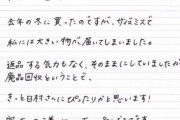 去年の冬に買ったのですが、サイズミスで
私には大きい物が届いてしまいました。
返品する気力もなく、そのままにしていましたが
廃品回収ということで、
きっと日村さんにぴったりかと思います!